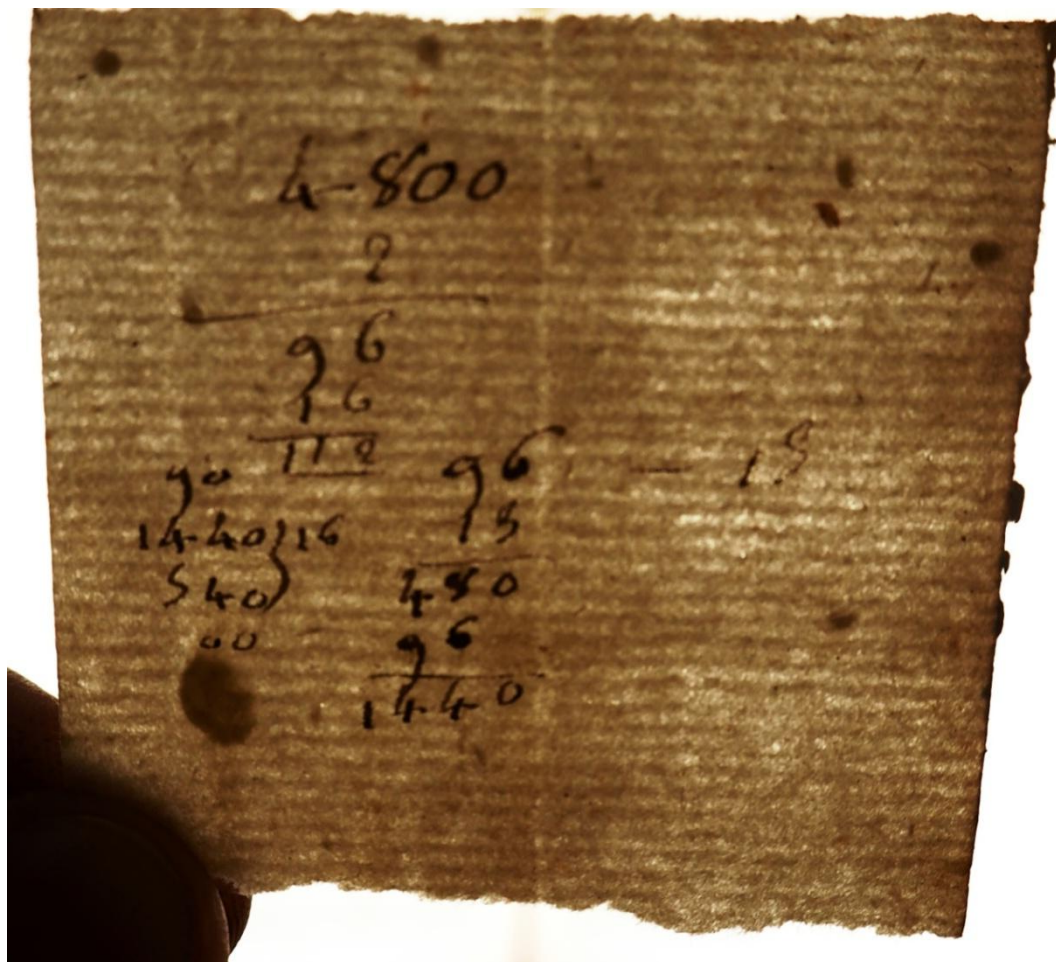 4800
2
96
16
112
90
1440)16
540)
00
96 — 15
15
480
96
1440